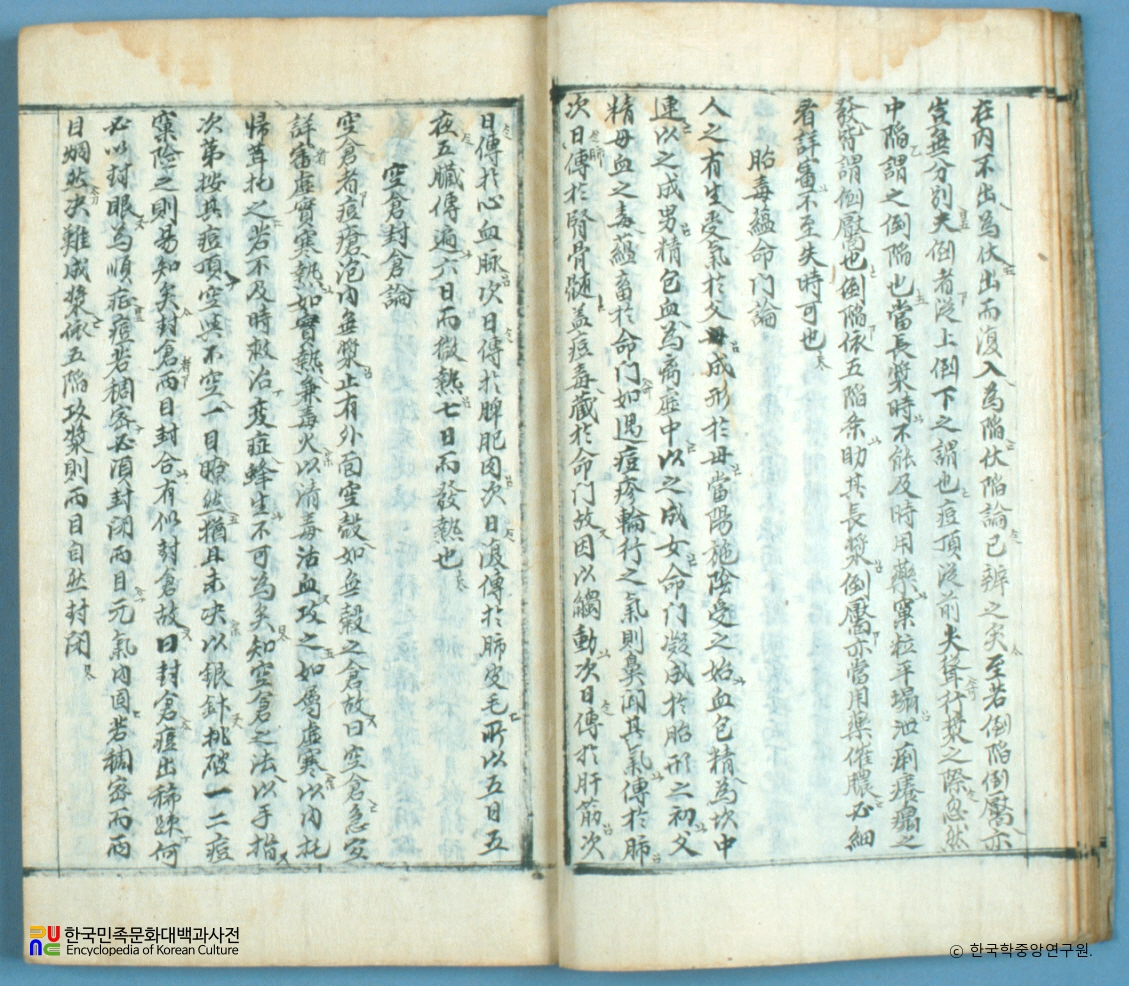 在內不出為伏出而復入為陷伏陷論已辨之矣至若倒陷倒靨亦
豈無分別夫倒者從上倒下之謂也痘頂從前夫聳行漿之際忽然
中陷謂之倒陷也當長漿時不能及時用藥窠粒平塌泄痢癢塌之
發皆謂倒靨也倒陷依五陷条助其長漿倒靨亦當用藥催膿必細
看詳審不至失時可也
胎毒蘊命门論
人之有生受氣於父母成形於母當陽施陰受之始血包精為坎中
連以之成男精包血為离虛中以之成女命门凝成於胎形之初父
精母血之毒蘊畜於命门如遇痘疹輪行之氣則鼻聞其氣傳於肺
次日傳於腎骨髓盖痘毒藏於命门故因以觸動次日傳於肝筋次
日傳於心血脉次日傳於脾肥肉次日復傳於肺皮毛所以五日五
夜五臟傳遍六日而微熱七日而發熱也
空倉封倉論
空倉者痘瘡泡內無漿止有外面空殼如無穀之倉故曰空倉急宜
詳審虛實寒熱如實熱兼毒火以清毒活血攻之如屬虛寒以內托
歸茸托之若不及時救治变症蜂生不可為矣知空倉之法以手指
次第按其痘頂空與不空一目瞭然猶且未决以銀針挑破一二痘
窠險之則易知矣封倉兩目封合有似封倉故曰封倉痘出稀踈何
必以封眼為順症痘若稠密必須封闭兩目元氣內固若稠密而兩
目炯然决難成漿依五陷攻漿則兩目自然封闭
한국민족문화대백과사전
Encyclopedia of Korean Culture
ⓒ 한국학중앙연구원.